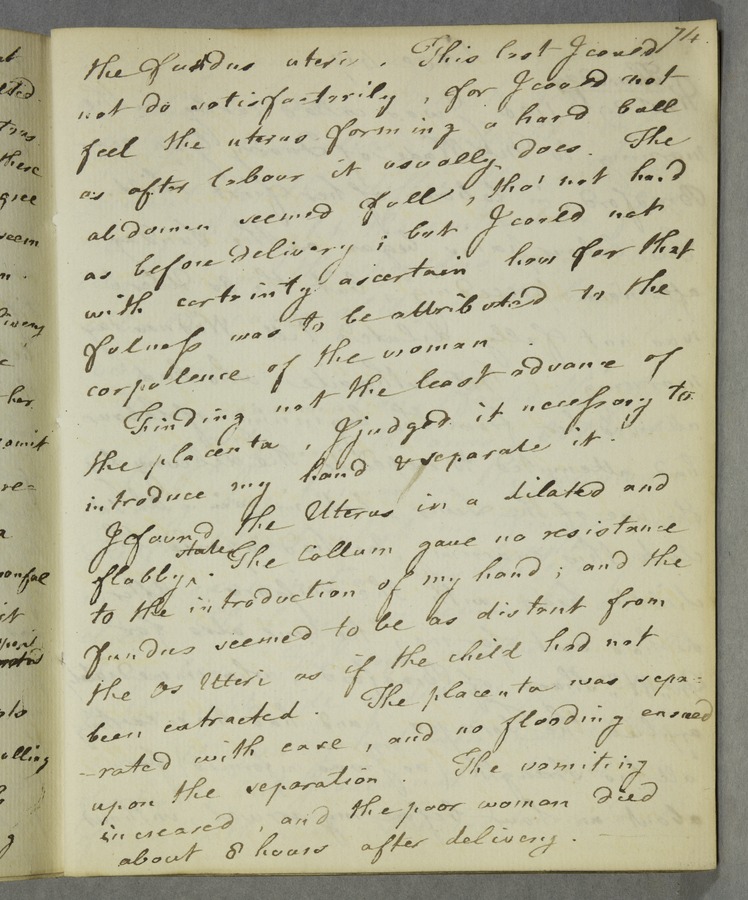 74.
the fundus uteri. This last I could
not do satisfactorily, for I could not
feel the uterus forming a hard ball
as after labour it usually does. The
abdomen seemed full, tho' not hard
as before delivery; but I could not
with certainty ascertain how far that
fulness was to be attributed to the
corpulence of the woman.
Finding not the least advance of
the placenta, I judged it necessary to
introduce my hand & separate it.
I found the Uterus in a dilated and
flabby state. The Collum gave no resistance
to the introduction of my hand; and the
fundus seemed to be as distant from
the Os Uteri as if the child had not
been extracted. The placenta was sepa=
-rated with ease, and no flooding ensued
upon the separation. The vomiting
increased, and the poor woman died
about 8 hours after delivery.